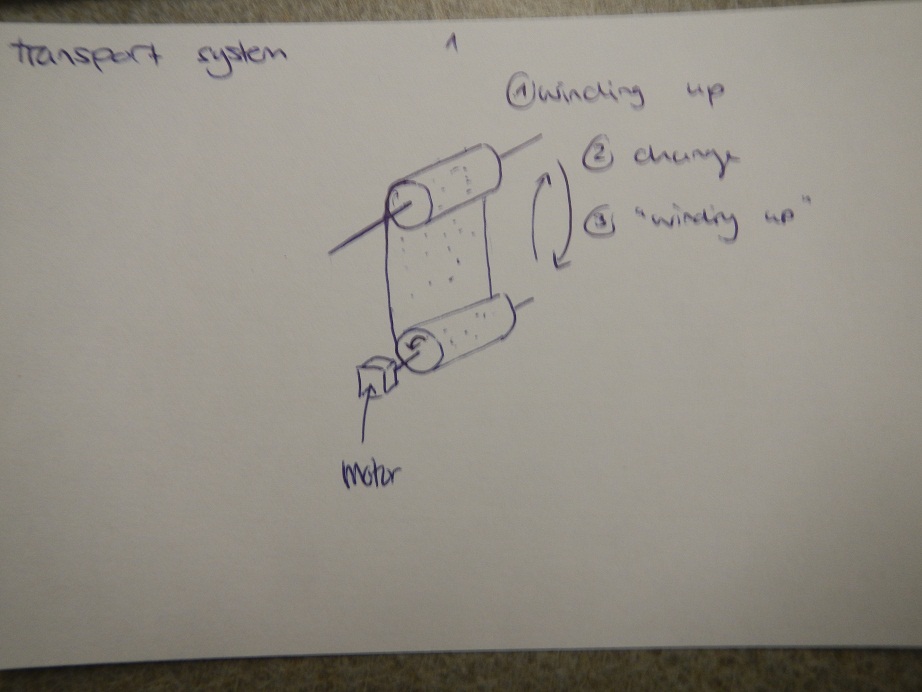 transport system 1
① winding up
② change
③ "winding up"
Motor